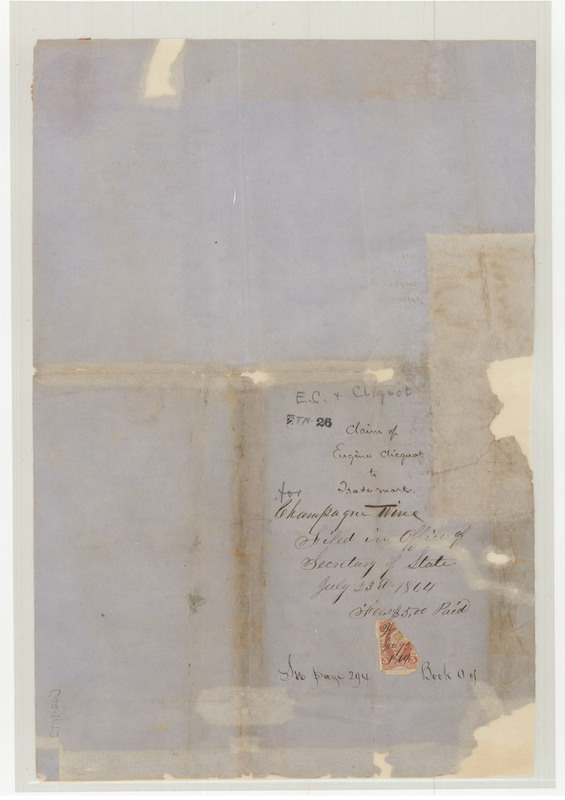 E.C. & Clicquot
TM-26
Claim of
Eugène Clicquot
to
Trade mark.
for
Champagne Wine
Filed in Office of
Secretary of State
July 23d 1864
Fees $5,00 Paid
1864
See page 294 Book